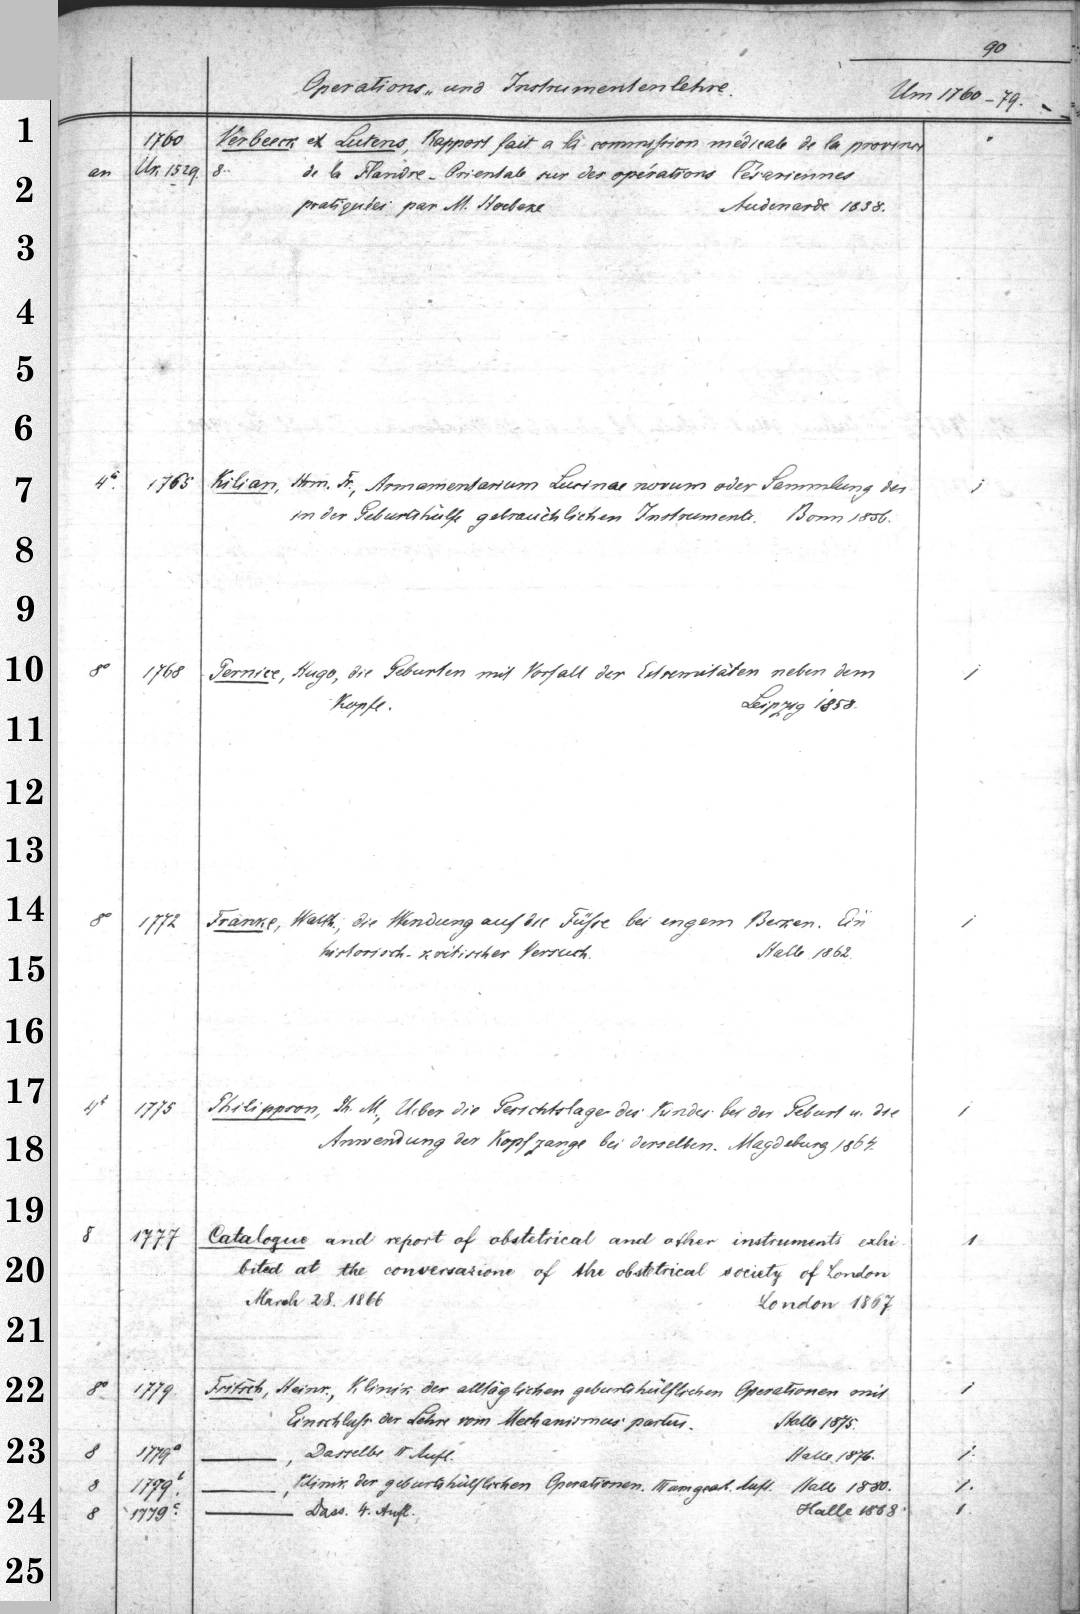 90
Operations- und Instrumentenlehre.
Um 1760-79.
1760 Verbeeck et Lutens, Rapport fait a la commission médicale de la province
an Un 1529. 8° de la Flandre-Orientale sur des opérations Césariennes
pratiquées par M. Hoebeke Audenarde 1838.
4° 1765 Kilian, Hrm. Fr., Armamentarium Lucinae novum oder Sammlung der 1
in der Geburtshülfe gebräuchlichen Instrumente. Bonn 1856.
8° 1768 Pernice, Hugo, die Geburten mit Vorfall der Extremitäten neben dem 1
Kopfe. Leipzig 1858.
8° 1772 Franke, Walth., die Wendung auf die Füsse bei engem Becken. Ein 1
historisch-kritischer Versuch. Halle 1862.
4° 1775 Philippson, Ph. M., Ueber die Gesichtslage des Kindes bei der Geburt u. die 1
Anwendung der Kopfzange bei derselben. Magdeburg 1864.
8 1777 Catalogue and report of obstetrical and other instruments exhi- 1
bited at the conversazione of the obstetrical society of London
March 28. 1866 London 1867
8° 1779. Fritsch, Heinr., Klinik der alltäglichen geburtshülflichen Operationen mit 1
Einschluss der Lehre vom Mechanismus partus. Halle 1875.
8 1779a ———, Dasselbe II Aufl. Halle 1876. 1.
8 1779b. ———, Klinik der geburtshülflichen Operationen. III umgearb. Aufl. Halle 1880. 1.
8 1779c. ——— Dass. 4. Aufl. Halle 1888 1
1
2
3
4
5
6
7
8
9
10
11
12
13
14
15
16
17
18
19
20
21
22
23
24
25